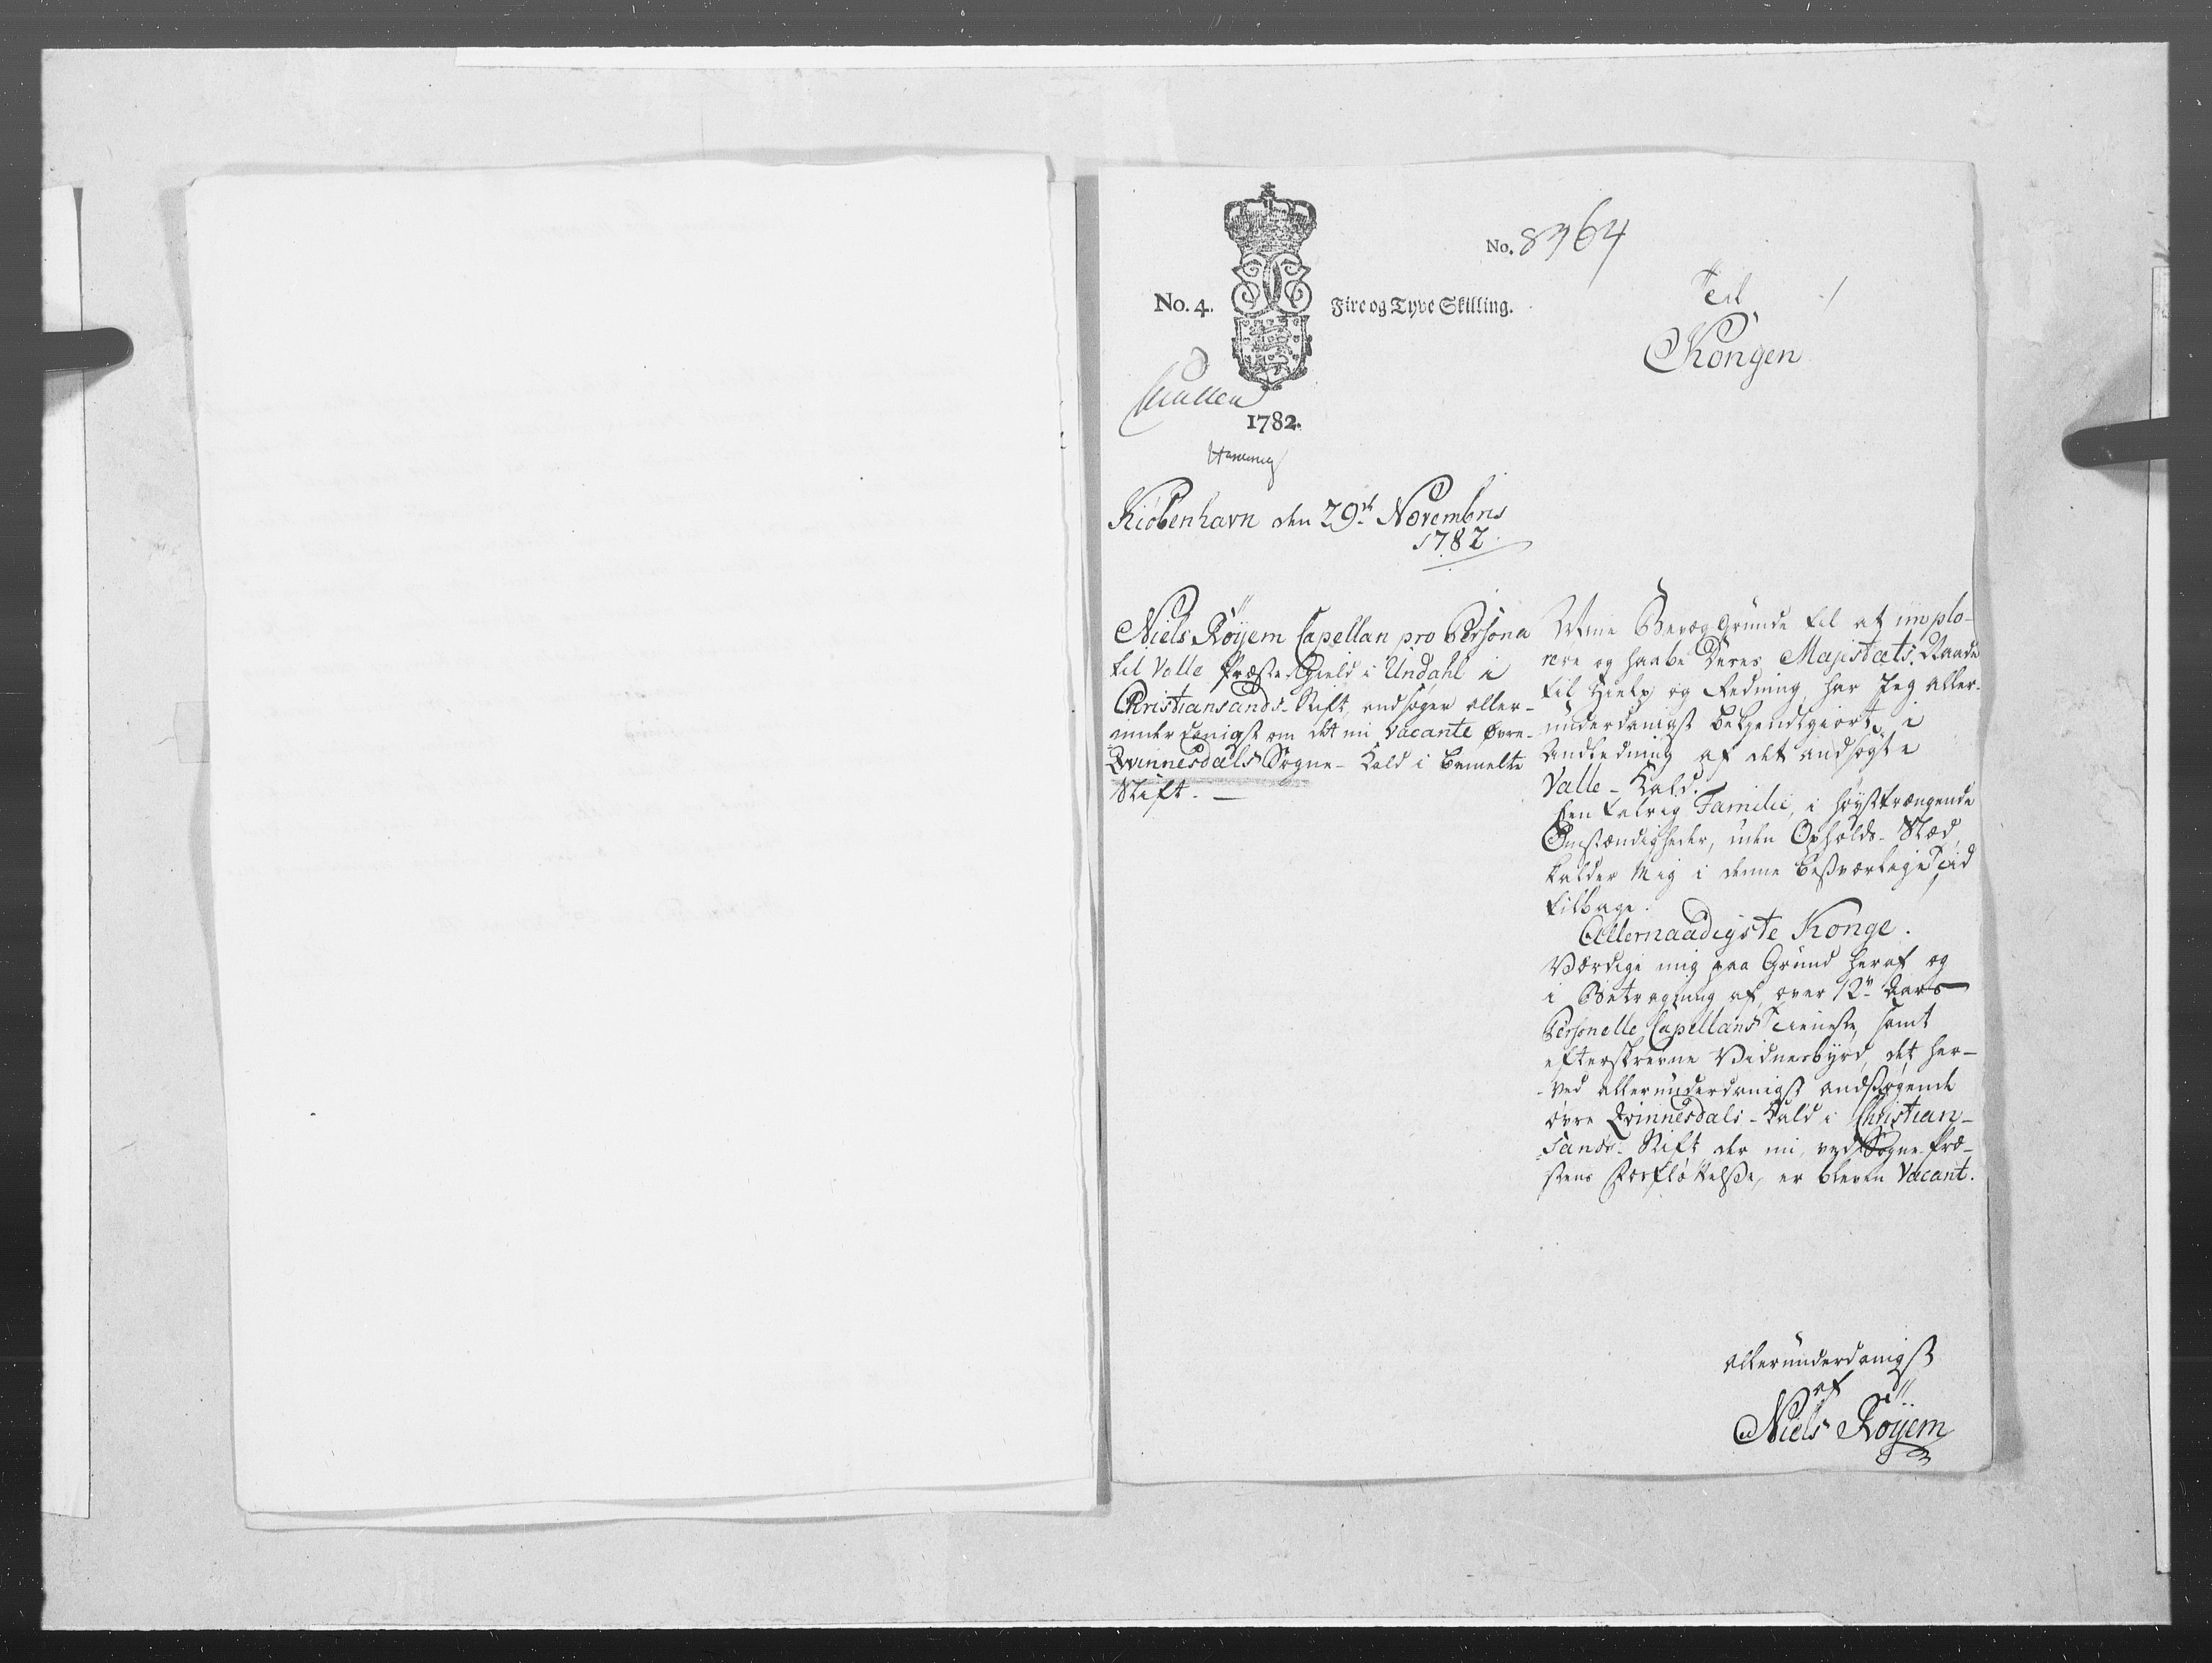 No. 8964
No. 4.
Fire og Tyve Skilling.
1782.
Til
Kongen
Kiöbenhavn den 29de Novembris
1782.
Niels Röyem Capellan pro Persona
til Valle Præste-Gield i Undahl i
Christiansands-Stift, andsøger aller-
underdanigst om det nu vacante Øvre-
Qvinnesdals Sogne-Kald i bemelte
Stift. —
Mine Bevæg Grunde til at implo-
rere og haabe Deres Majestæts Naade
til Hielp og Redning, har Jeg aller-
underdanigst bekjendtgiort, i
Andledning af det andsøgte
Valle-Kald.
En talrig Familie, i høystrængende
Omstændigheder, uden Opholds-Stæd
kalder Mig i denne besværlige Tiid
tilbage.
Allernaadigste Konge.
Værdige mig paa Grund heraf og
i Betragtning af, over 12v Aars
Personelle Capellans Tieneste, samt
efterskrevne Vidnesbyrd, det her-
ved allerunderdanigst andsøgende
øvre Qvinnesdals-Kald i Christian-
sands-Stift der nu, ved Sogne-Præ-
stens Forflöttelse, er bleven Vacant.
allerunderdanigst
af
Niels Röyem